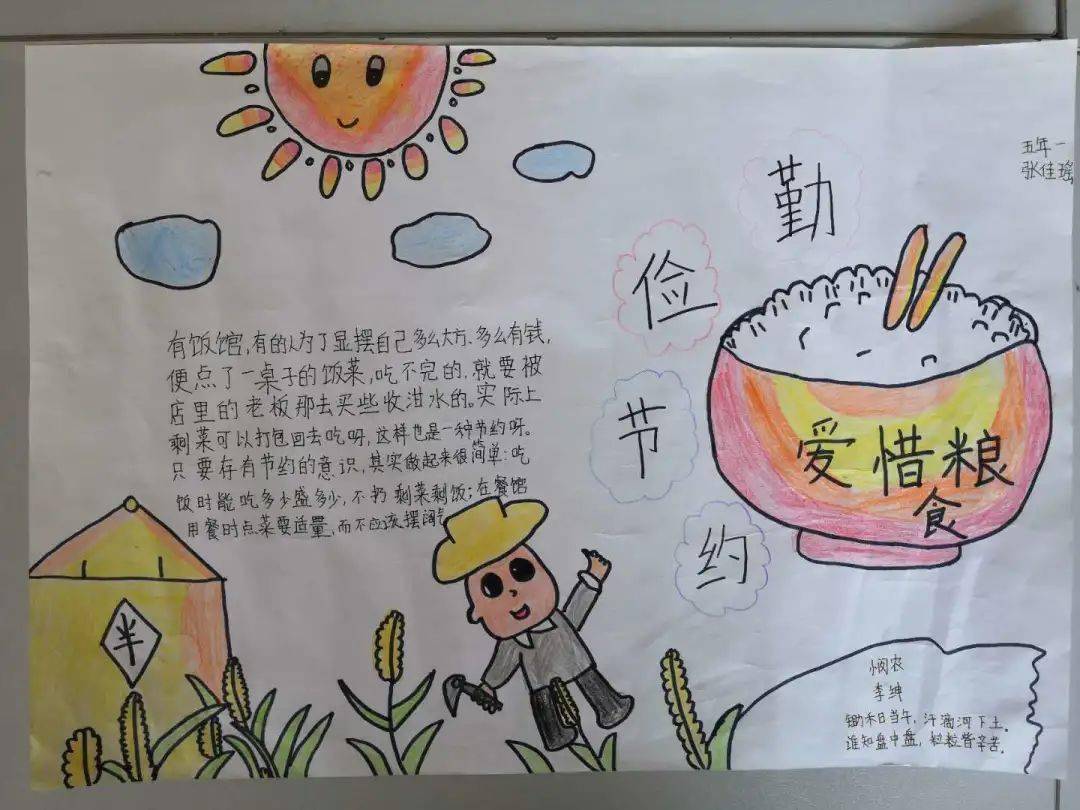 五年一
张佳瑶
勤
俭
节
约
爱惜粮
食
有饭馆,有的人为了显摆自己多么大方、多么有钱,
便点了一桌子的饭菜,吃不完的,就要被
店里的老板那去买些收泔水的。实际上
剩菜可以打包回去吃呀,这样也是一种节约呀。
只要存有节约的意识,其实做起来很简单:吃
饭时能吃多少盛多少,不扔剩菜剩饭;在餐馆
用餐时点菜要适量,而不应该摆阔气
半
悯农
李绅
锄禾日当午,汗滴河下土.
谁知盘中盘,粒粒皆辛苦.